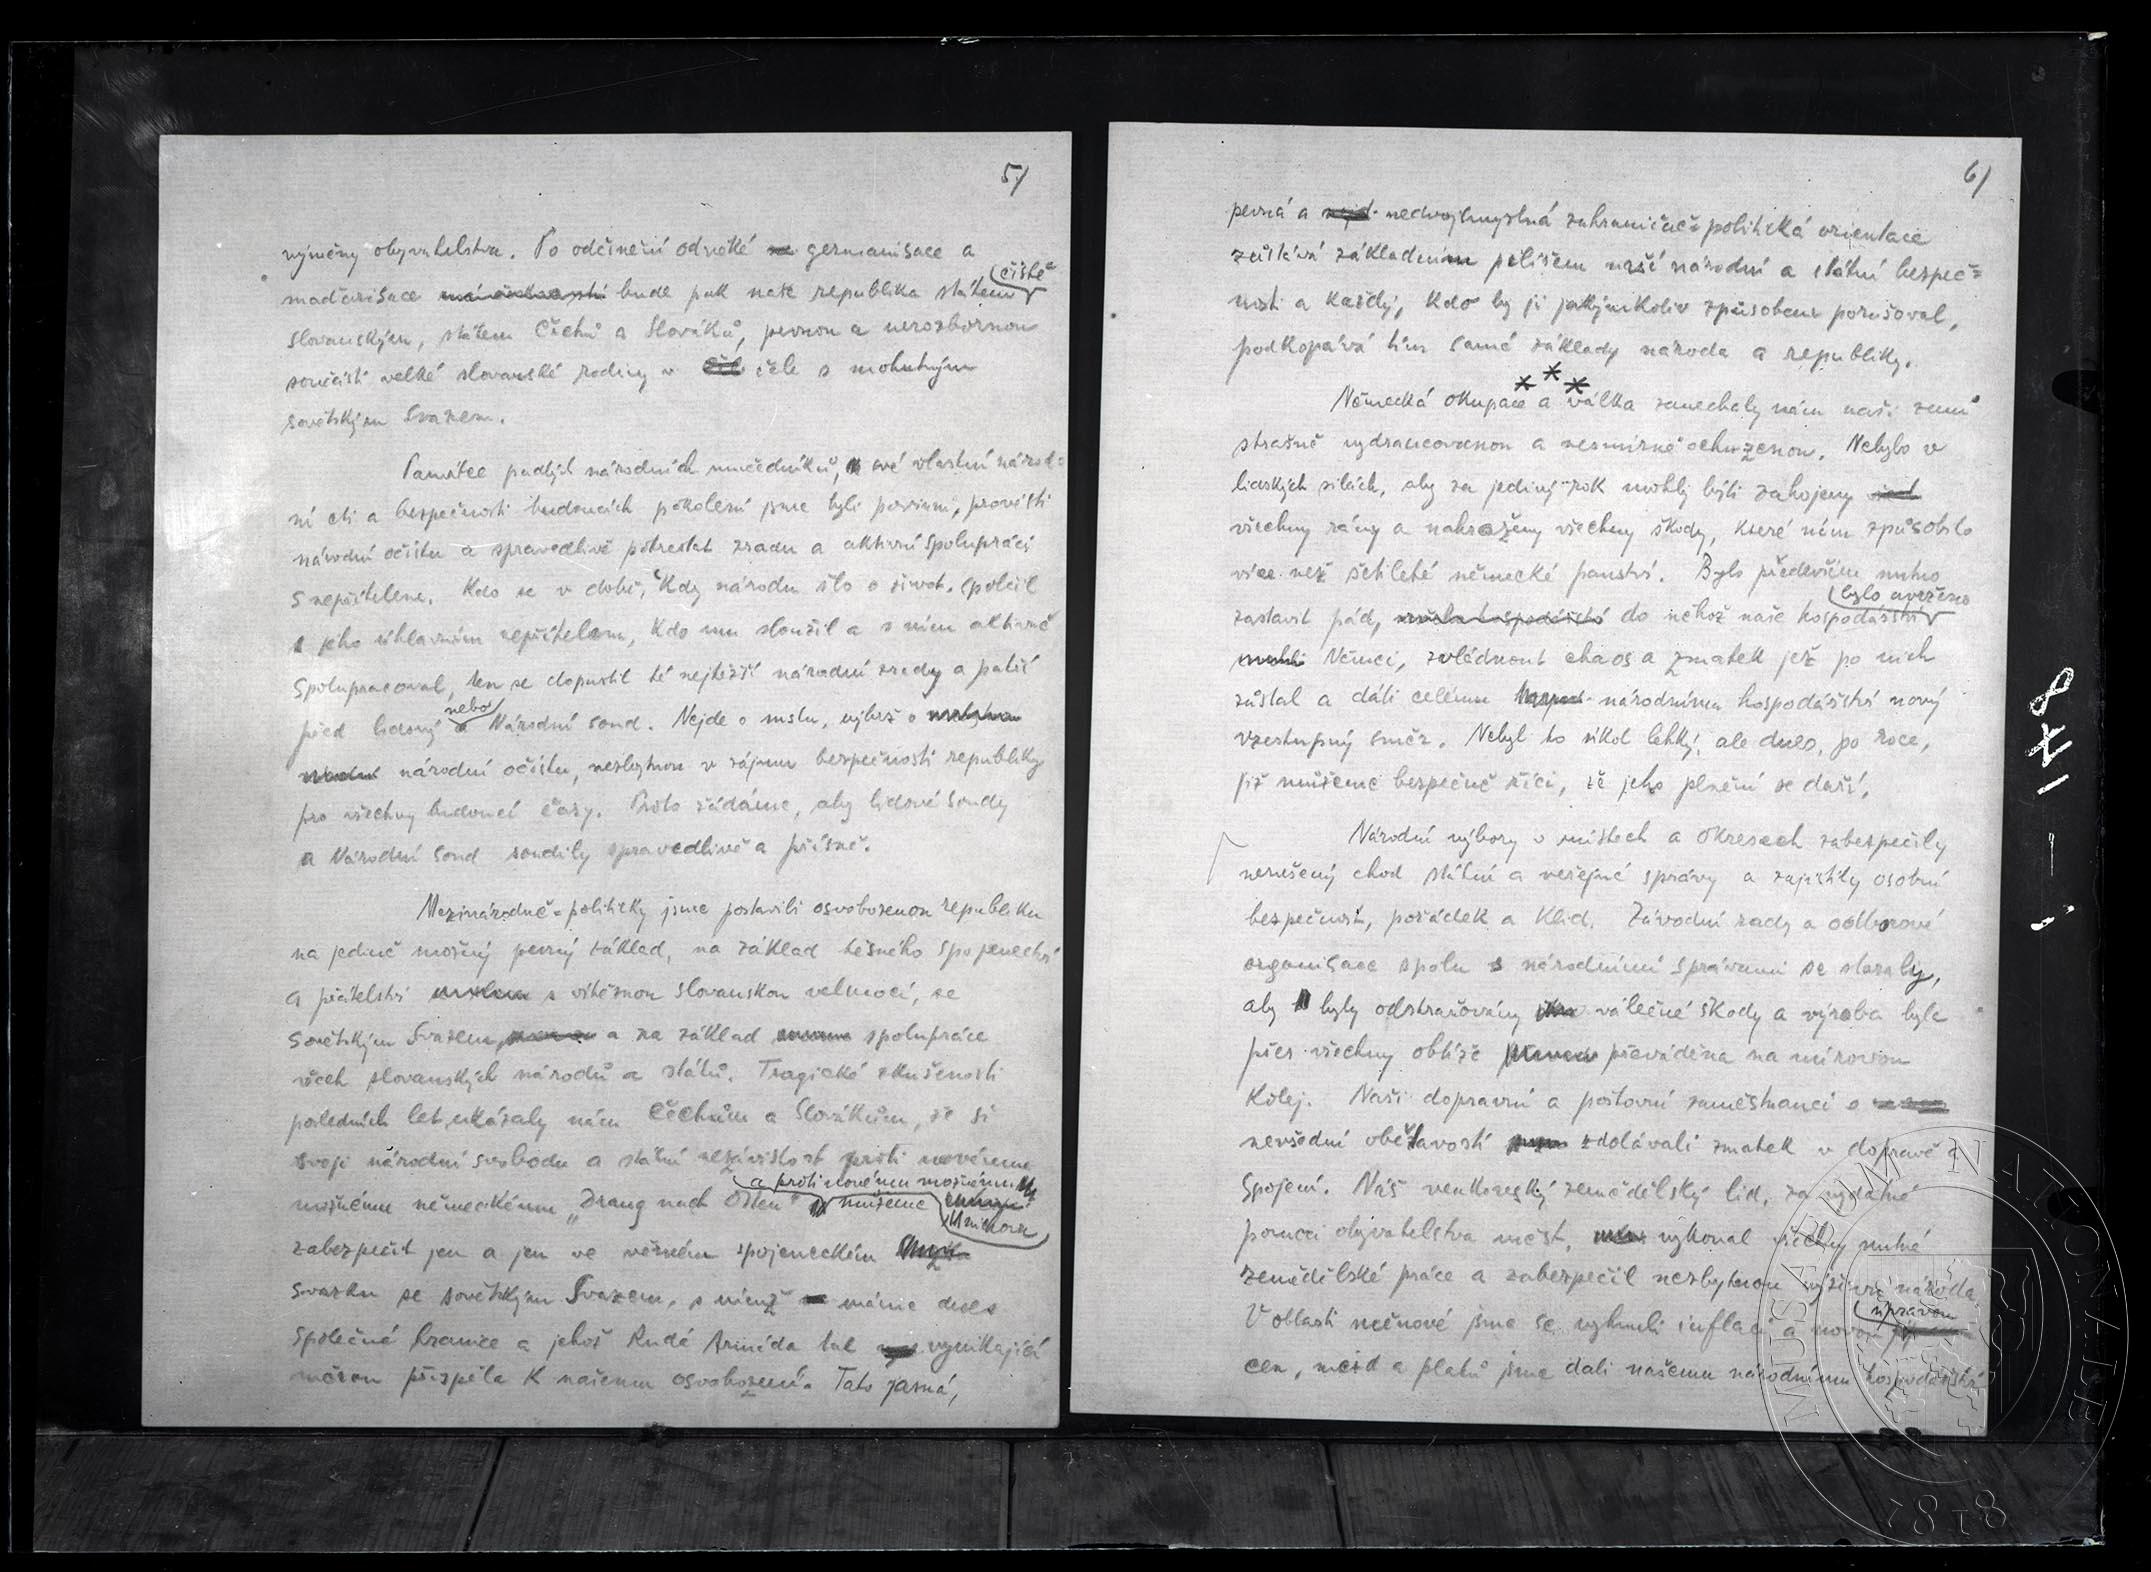 5/
výměny obyvatelstva. Po odčinění odvěké germanisace a
čistě
maďarisace bude pak naše republika státem
slovanským, státem Čechů a Slováků, pevnou a nerozbornou
součástí velké slovanské rodiny v čele s mohutným
sovětským Svazem.
Památce padlých národních mučedníků, své vlastní národ=
ní cti a bezpečnosti budoucích pokolení jsme byli povinni, provésti
národní očistu a spravedlivě potrestat zradu a aktivní spolupráci
s nepřítelem. Kdo se v době, kdy národu šlo o život, spolčil
s jeho úhlavním nepřítelem, kdo mu sloužil a s ním aktivně
spolupracoval, ten se dopustil té nejtěžší národní zrady a patří
nebo
před lidový Národní soud. Nejde o mstu, nýbrž o
národní očistu, nezbytnou v zájmu bezpečnosti republiky
pro všechny budoucí časy. Proto žádáme, aby lidové soudy
a Národní soud soudily spravedlivě a přísně.
Mezinárodně=politicky jsme postavili osvobozenou republiku
na jedině možný pevný základ, na základ těsného spojenectví
a přátelství s vítěznou slovanskou velmocí, se
Sovětským Svazem, a na základ spolupráce
všech slovanských národů a států. Tragické zkušenosti
posledních let ukázaly nám Čechům a Slovákům, že si
svoji národní svobodu a státní nezávislost proti novému
a proti novému možnému
možnému německému „Drang nach Osten" můžeme
Mnichovu
zabezpečit jen a jen ve věrném spojeneckém
svazku se sovětským Svazem, s nímž máme dnes
společné hranice a jehož Rudá Armáda tak vynikající
měrou přispěla k našemu osvobození. Tato jasná,
6/
pevná a nedvojsmyslná zahraničně=politická orientace
zůstává základním pilířem naší národní a státní bezpeč=
nosti a každý, kdo by ji jakýmkoliv způsobem porušoval,
podkopává tím samé základy národa a republiky.
* * *
Německá okupace a válka zanechaly nám naši zemi
strašně vydrancovanou a nesmírně ochuzenou. Nebylo v
lidských silách, aby za jediný rok mohly býti zahojeny
všechny rány a nahraženy všechny škody, které nám způsobilo
více než šestileté německé panství. Bylo především nutno
bylo uvrženo
zastavit pád, do něhož naše hospodářství
Němci, zvládnout chaos a zmatek jež po nich
zůstal a dáti celému národnímu hospodářství nový
vzestupný směr. Nebyl to úkol lehký, ale dnes, po roce,
již můžeme bezpečně říci, že jeho plnění se daří.
Národní výbory v místech a okresech zabezpečily
nerušený chod státní a veřejné správy a zajistily osobní
bezpečnost, pořádek a klid. Závodní rady a odborové
organisace spolu s národními správami se staraly,
aby byly odstraňovány válečné škody a výroba byla
přes všechny obtíže převáděna na mírovou
kolej. Naši dopravní a poštovní zaměstnanci s
nevšední obětavostí zdolávali zmatek v dopravě a
spojení. Náš venkovský zemědělský lid, za vydatné
pomoci obyvatelstva měst, vykonal všechny nutné
zemědělské práce a zabezpečil nezbytnou výživu národa.
úpravou
V oblasti měnové jsme se vyhnuli inflaci a novou
cen, mezd a platů jsme dali našemu národnímu hospodářství
1-178
MUSEUM NATIONALE
1818